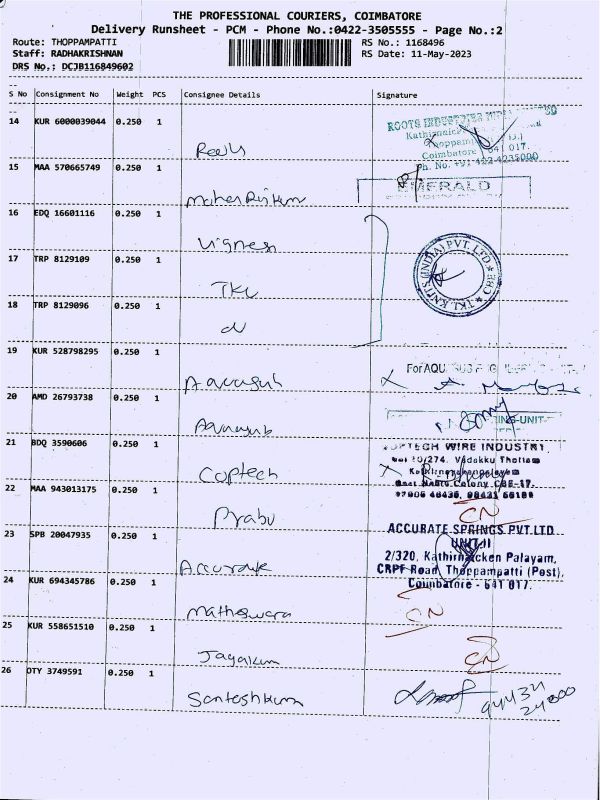 THE PROFESSIONAL COURIERS, COIMBATORE
Delivery Runsheet - PCM - Phone No.:0422-3505555 - Page No.:2
Route: THOPPAMPATTI RS No.: 1168496
Staff: RADHAKRISHNAN RS Date: 11-May-2023
DRS No.: DCJB116849602
S No Consignment No Weight PCS Consignee Details Signature
14 KUR 6000039044 0.250 1
ROOTS INDUSTRIES
Coimbatore 641 017.
Ph. No. +91-422-4235000
15 MAA 570665749 0.250 1
EMERALD
16 EDQ 16601116 0.250 1
Vignesh
17 TRP 8129109 0.250 1 TKL
TKL KNITS (INDIA) PVT. LTD. CBE
18 TRP 8129096 0.250 1
19 KUR 528798295 0.250 1
For AQU
20 AMD 26793738 0.250 1
ING-UNIT-
21 BDQ 3590606 0.250 1 Coptech
COPTECH WIRE INDUSTRY
10/274, Vadakku Thottam
Kathirnaickenpalayam
Colony CBE-17.
22 MAA 943013175 0.250 1 Prabu
CN
23 SPB 20047935 0.250 1 Accurate
ACCURATE SPRINGS PVT.LTD
UNIT-II
2/320, Kathirnaicken Palayam,
CRPF Road, Thoppampatti (Post),
Coimbatore - 641 017.
24 KUR 694345786 0.250 1 Matheswara
CN
25 KUR 558651510 0.250 1 Jayakum
CN
26 OTY 3749591 0.250 1 Santoshkum
94432
24000